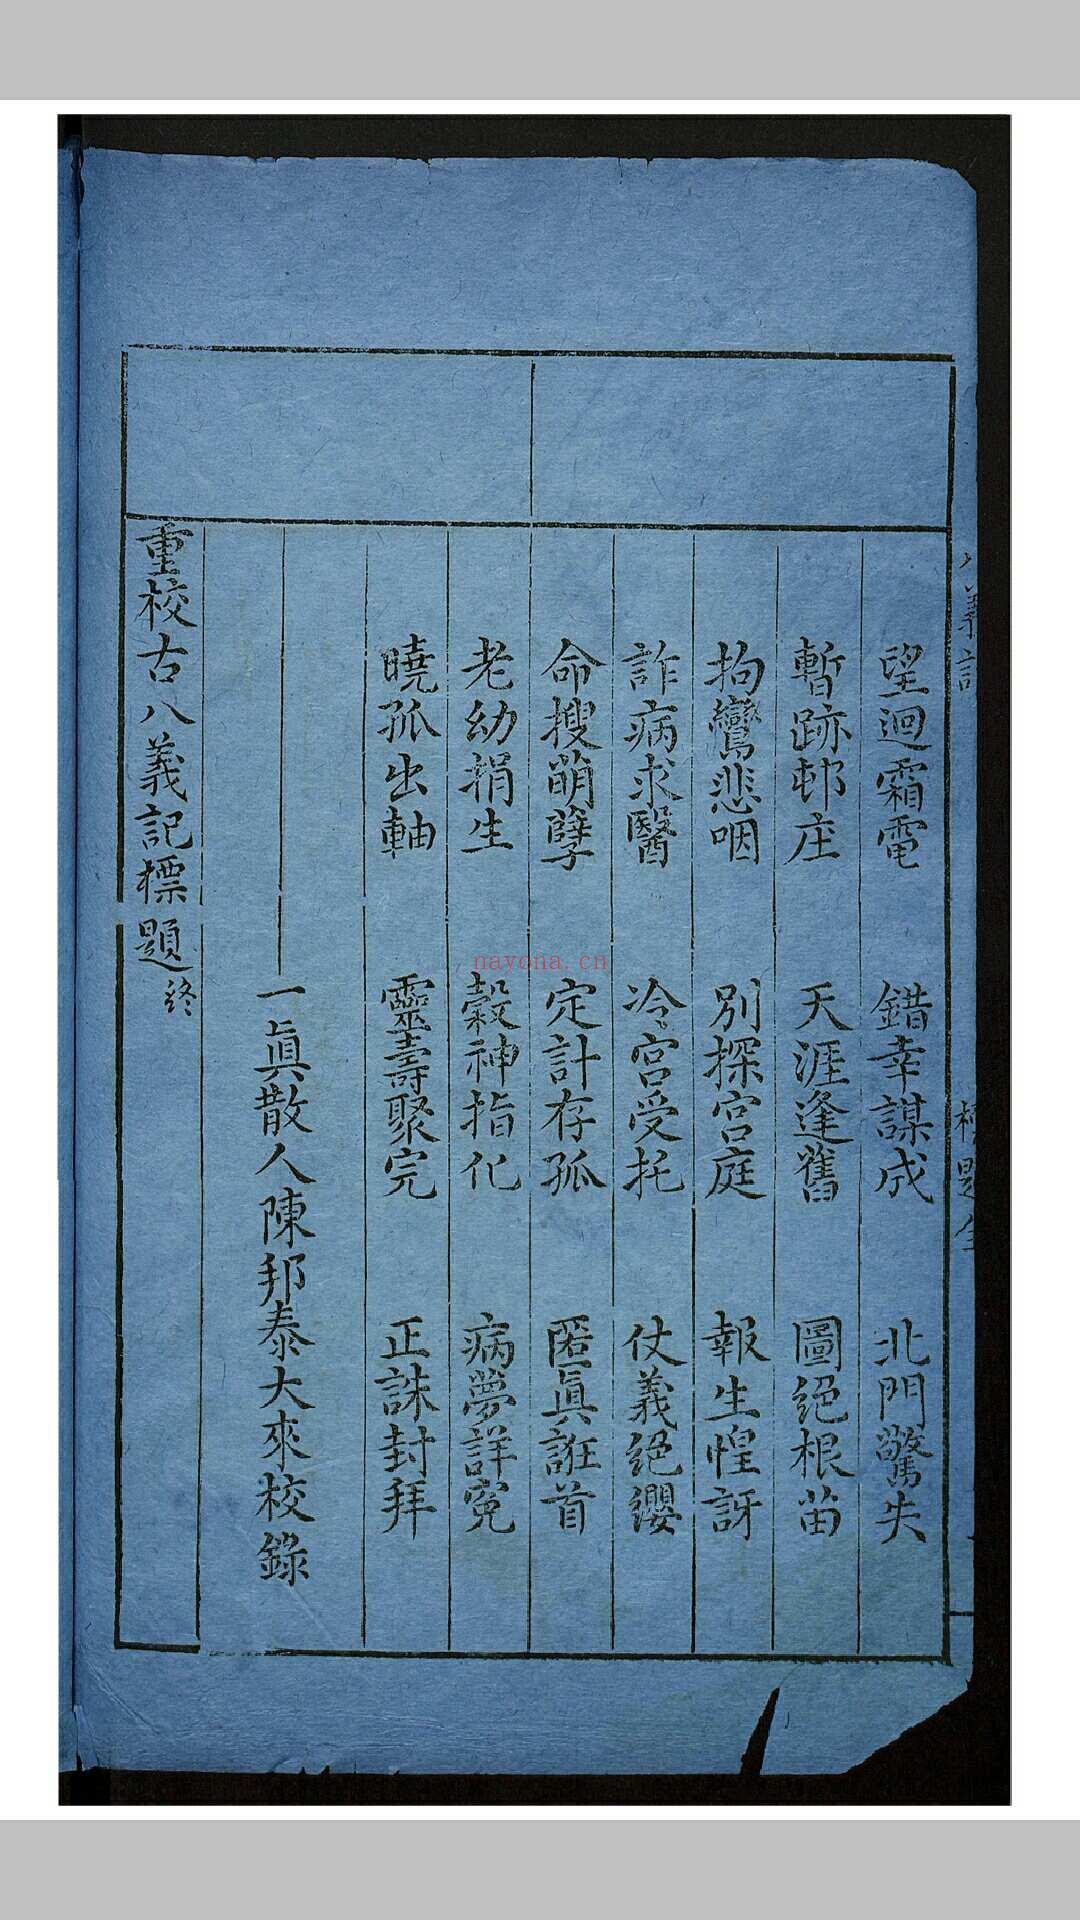 望迴霜電　錯幸謀成　北門驚失
暫跡邨庄　天涯逢舊　圖絕根苗
拘鸞悲咽　別探宮庭　報生惶訝
詐病求醫　冷宮受托　仗義絕纓
命搜萌孽　定計存孤　匿眞誑首
老幼捐生　穀神指化　病夢詳寃
曉孤出軸　靈壽聚完　正誅封拜
一眞散人陳邦泰大來校錄
重校古八義記標題終
nayona.cn